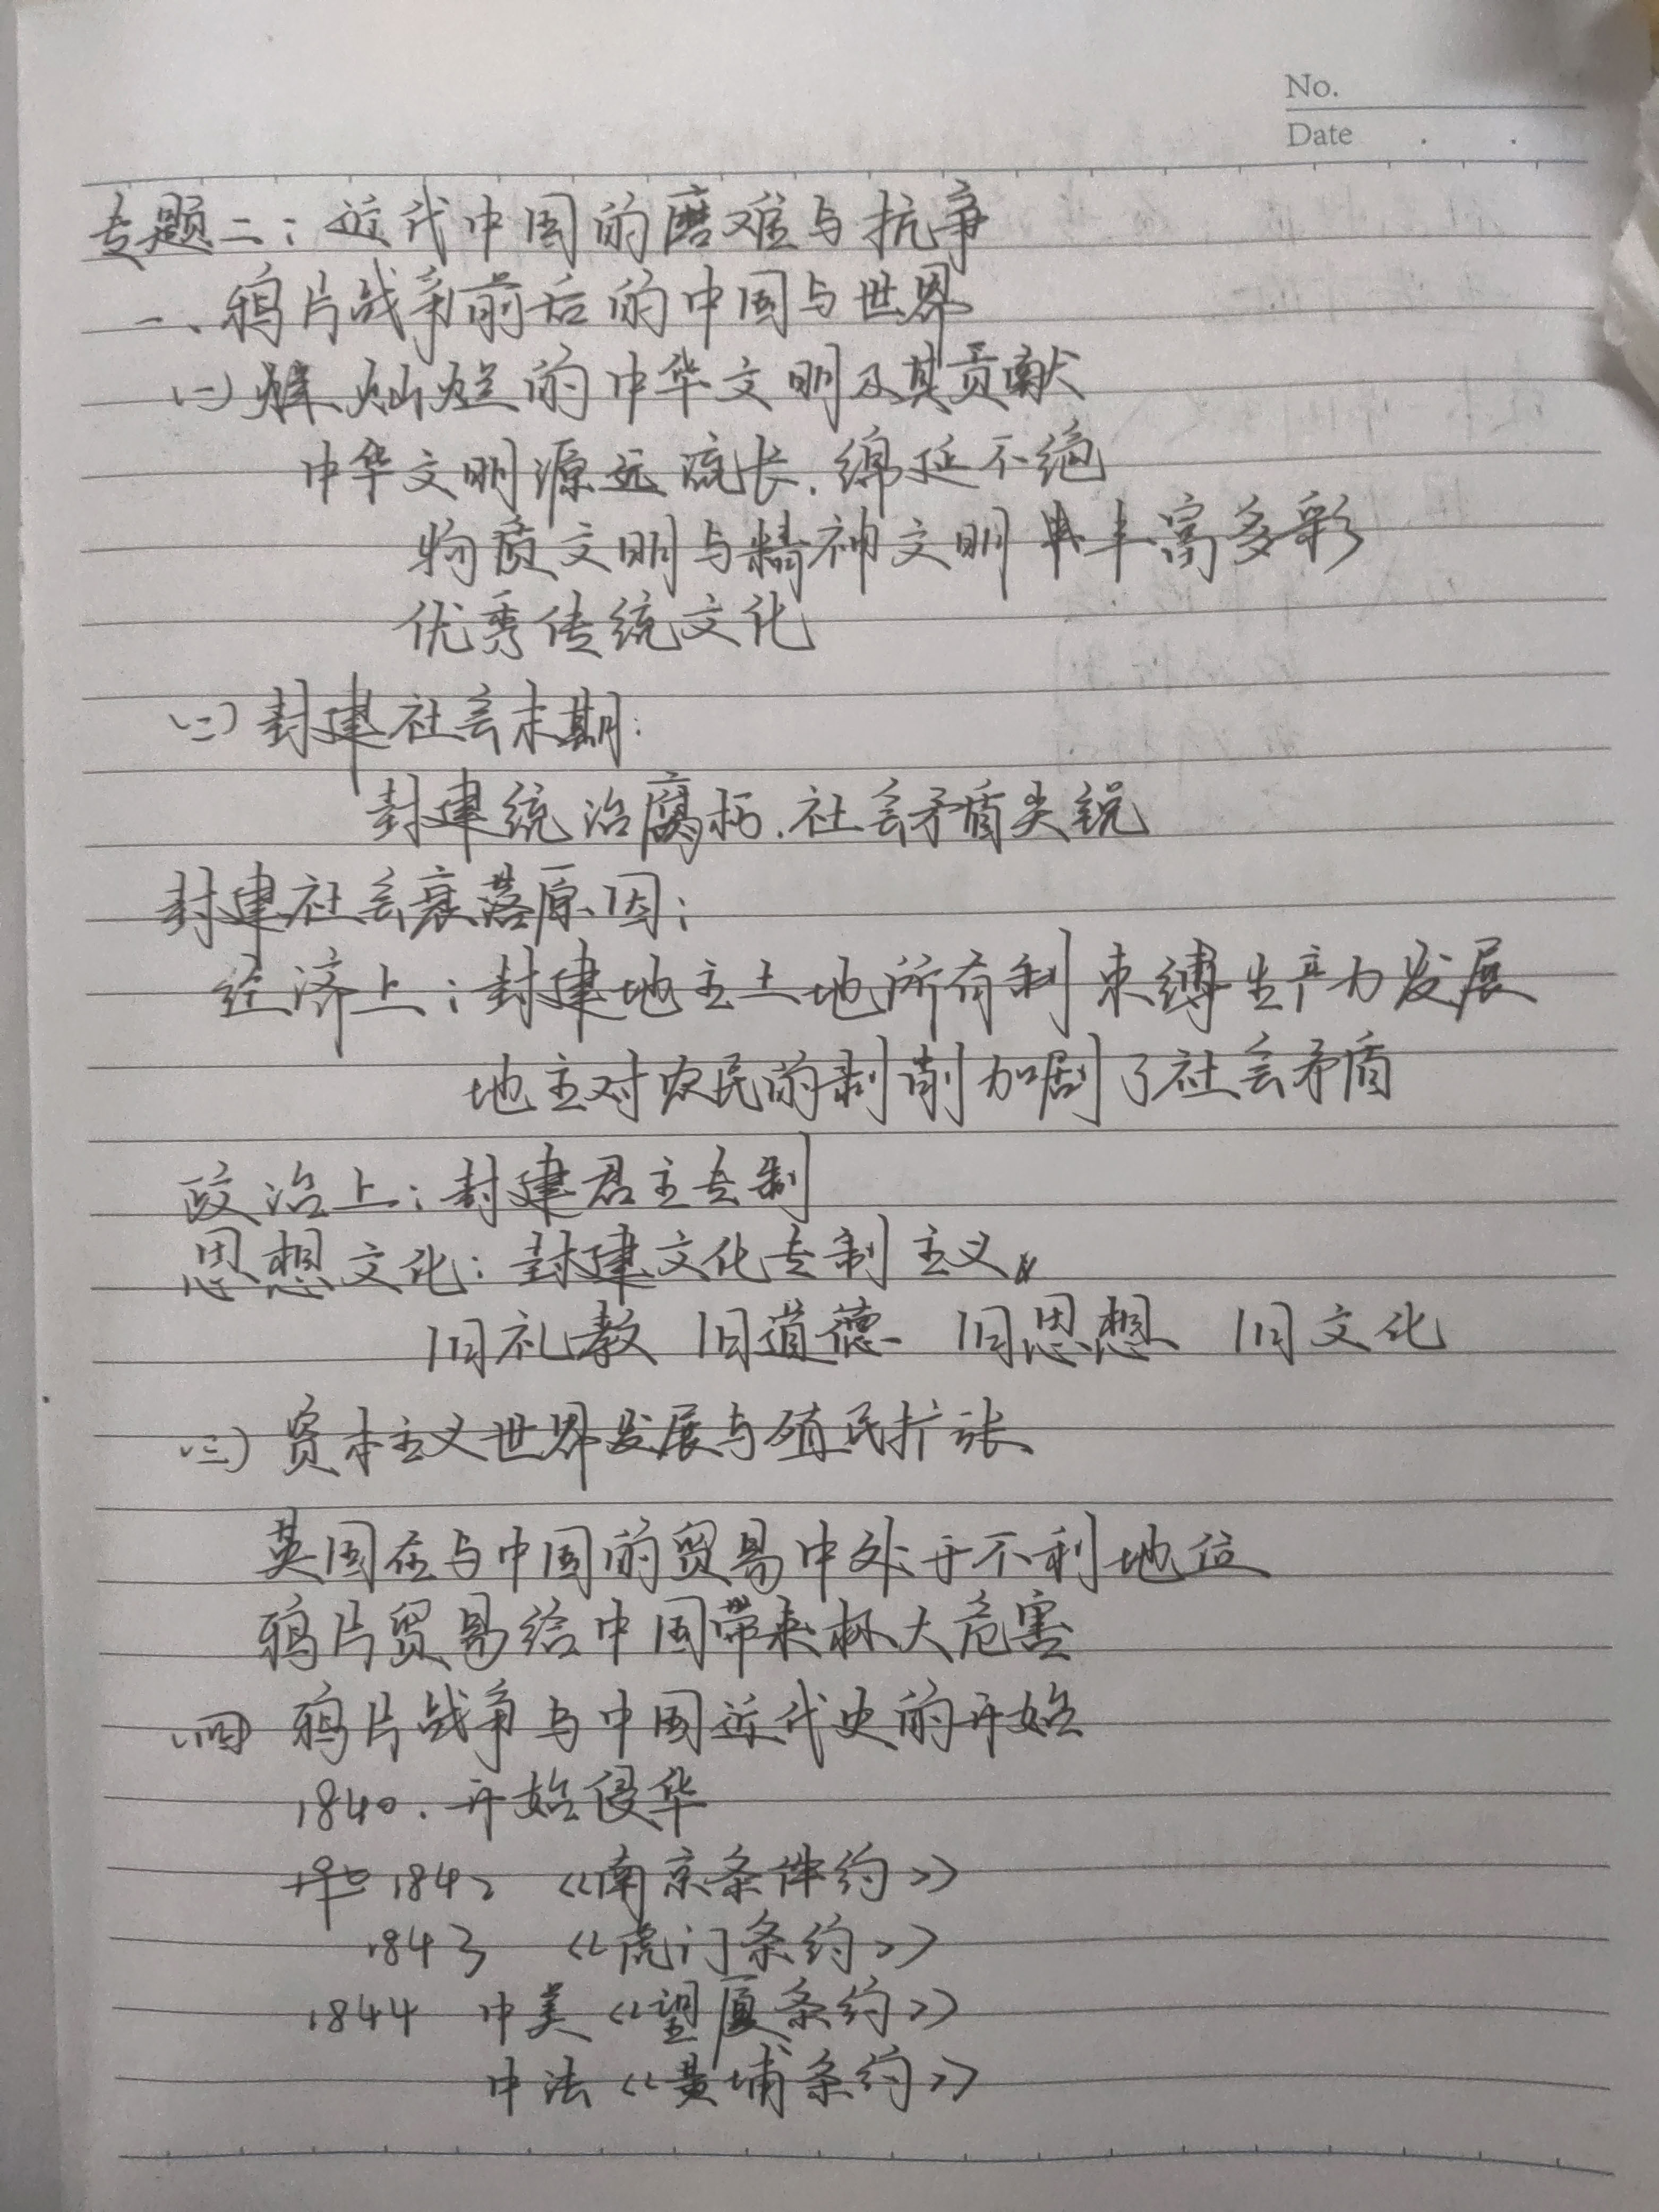 No.
Date . .
专题二：近代中国的磨难与抗争
一、鸦片战争前后的中国与世界
(一) 灿烂的中华文明及其贡献
中华文明源远流长.绵延不绝
物质文明与精神文明丰富多彩
优秀传统文化
(二) 封建社会末期：
封建统治腐朽.社会矛盾尖锐
封建社会衰落原因：
经济上：封建地主土地所有制束缚生产力发展
地主对农民的剥削加剧了社会矛盾
政治上：封建君主专制
思想文化：封建文化专制主义
旧礼教 旧道德 旧思想 旧文化
(三) 资本主义世界发展与殖民扩张
英国在与中国的贸易中处于不利地位
鸦片贸易给中国带来极大危害
(四) 鸦片战争与中国近代史的开始
1840.开始侵华
1842 《南京条约》
1843 《虎门条约》
1844 中美《望厦条约》
中法《黄埔条约》